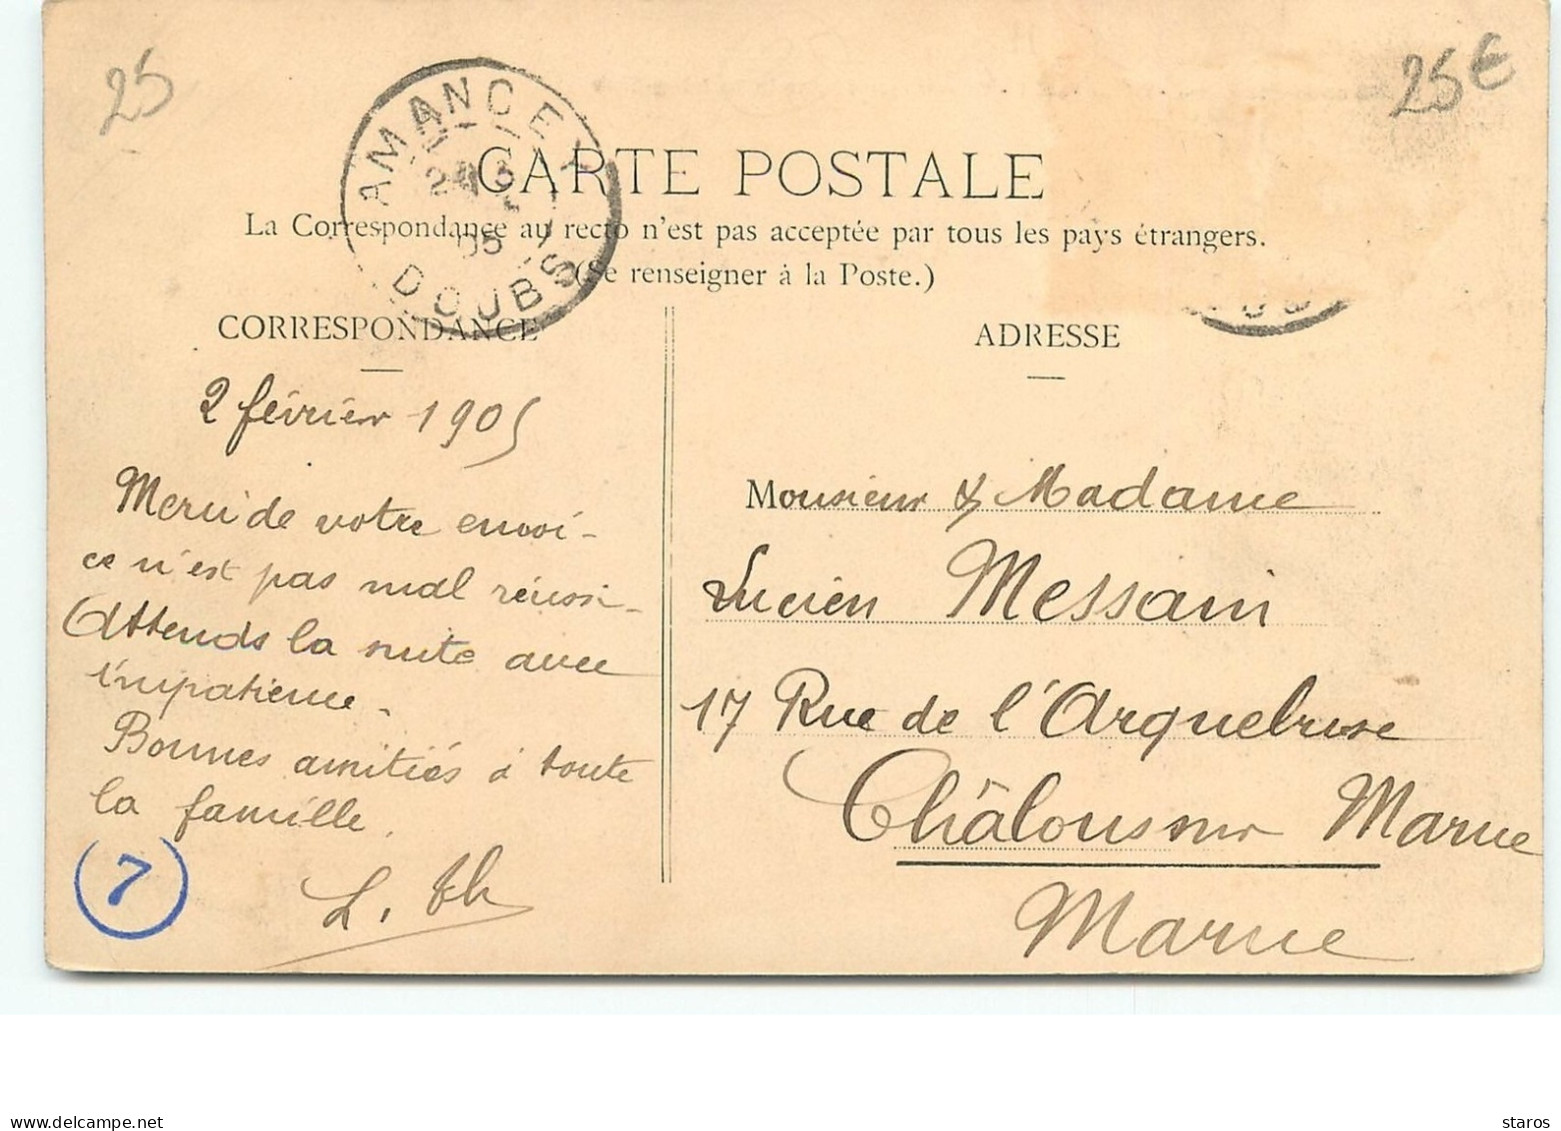 25
25€
AMANCEY
05
DOUBS
CARTE POSTALE
La Correspondance au recto n'est pas acceptée par tous les pays étrangers.
(Se renseigner à la Poste.)
CORRESPONDANCE
2 février 1905
Merci de votre envoi -
ce n'est pas mal réussi -
Attends la suite avec
impatience -
Bonnes amitiés à toute
la famille.
L. th
7
ADRESSE
Monsieur & Madame
Lucien Messain
17 Rue de l'Arquebuse
Châlons sur Marne
Marne
staros